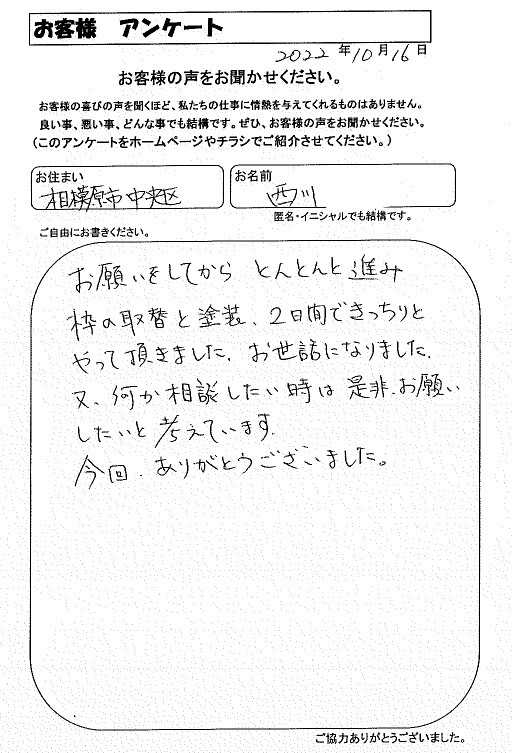 お客様 アンケート
2022年10月16日
お客様の声をお聞かせください。
お客様の喜びの声を聞くほど、私たちの仕事に情熱を与えてくれるものはありません。
良い事、悪い事、どんな事でも結構です。ぜひ、お客様の声をお聞かせください。
(このアンケートをホームページやチラシでご紹介させてください。)
お住まい
相模原市中央区
お名前
西川
匿名・イニシャルでも結構です。
ご自由にお書きください。
お願いをしてから とんとんと進み
枠の取替と塗装、2日間できっちりと
やって頂きました。お世話になりました。
又、何か相談したい時は是非、お願い
したいと考えています。
今回、ありがとうございました。
ご協力ありがとうございました。